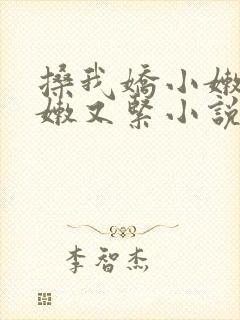 搡我嬌小嫩
嫩又緊小說
李智杰